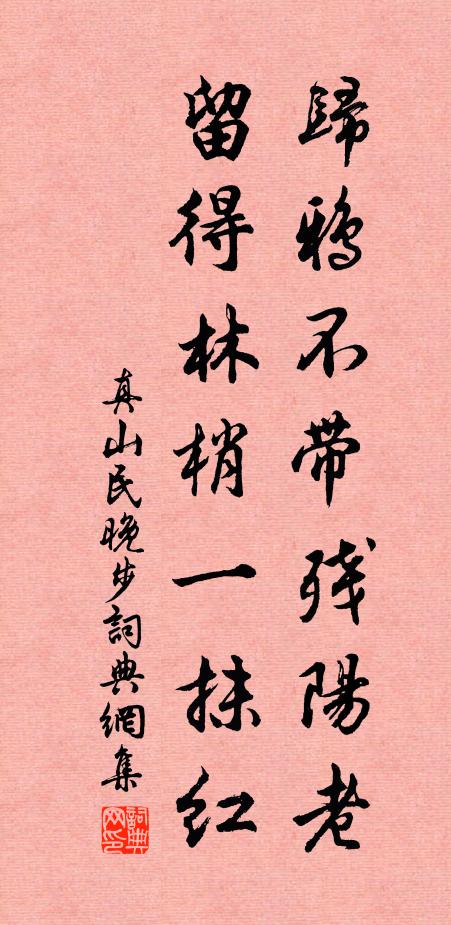 歸鴉不帶残陽老
留得林梢一抹红
真山民晚步詞典網集
詞典网印